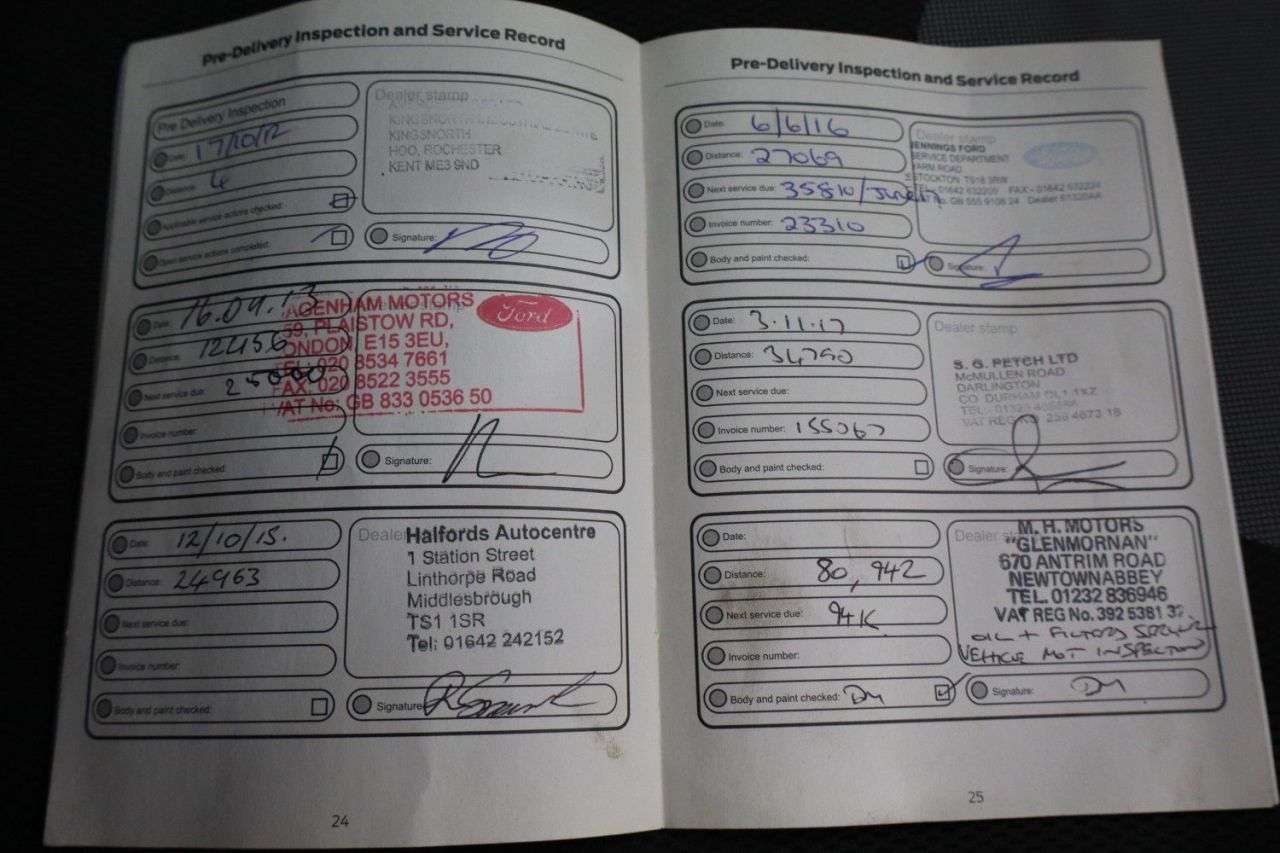 Pre-Delivery Inspection and Service Record
Pre Delivery Inspection
Date: 17/10/12
Distance: 4
Applicable service actions checked:
Open service actions completed:
Dealer stamp
KINGSNORTH INDUSTRIAL
KINGSNORTH
HOO, ROCHESTER
KENT ME3 9ND
Signature:
Date: 16.09.13
Distance: 12456
Next service due: 25000
Invoice number:
Body and paint checked:
DAGENHAM MOTORS
59, PLAISTOW RD,
LONDON, E15 3EU,
TEL: 020 8534 7661
FAX: 020 8522 3555
VAT No: GB 833 0536 50
Ford
Signature:
Date: 12/10/15.
Distance: 24963
Next service due:
Invoice number:
Body and paint checked:
Dealer
Halfords Autocentre
1 Station Street
Linthorpe Road
Middlesbrough
TS1 1SR
Tel: 01642 242152
Signature:
24
Pre-Delivery Inspection and Service Record
Date: 6/6/16
Distance: 27069
Next service due: 35810/June 17
Invoice number: 23310
Body and paint checked:
Dealer stamp
JENNINGS FORD
SERVICE DEPARTMENT
YARM ROAD
STOCKTON TS18 3RW
TEL: 01642 632209 FAX - 01642 632224
GB 555 9108 24 Dealer
Signature:
Date: 3.11.17
Distance: 34790
Next service due:
Invoice number: 155067
Body and paint checked:
Dealer stamp
S. G. PETCH LTD
McMULLEN ROAD
DARLINGTON
CO. DURHAM DL1 1XZ
TEL - 01325
VAT REG No 4673 18
Signature:
Date:
Distance: 80,942
Next service due: 94K
Invoice number:
Body and paint checked: DM
Dealer
M. H. MOTORS
"GLENMORNAN"
670 ANTRIM ROAD
NEWTOWNABBEY
TEL. 01232 836946
VAT REG No. 392 5381 37
OIL + FILTERS SERVICE
VEHICLE MOT INSPECTION
Signature: DM
25